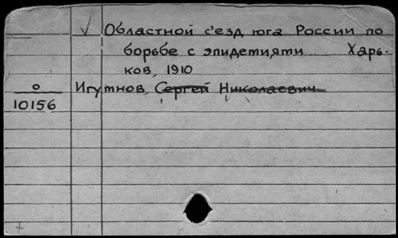 √ Областной съезд юга России по
борьбе с эпидетияти Харь-
ков, 1910
О Игутнов, Сергей Николаевич.
10156